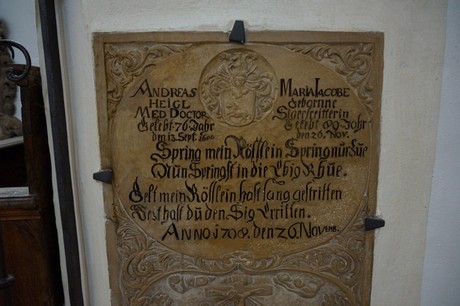 ANDREAS
HEIGL
MED DOCTOR
Gelebt 76 Jahr
den 12 Sept.
MARIA IACOBE
Geborne
Sigersreitterin
Gelebt 89 Jahr
den 26. Nov.
Spring mein Rösslein Spring nur Zue
Nun Springst in die Ebig Rhüe.
Gelt mein Rösslein hast lang gestritten
Iezt hast dü den Sig Erritten.
ANNO 1708. den 26. NOVEMB.